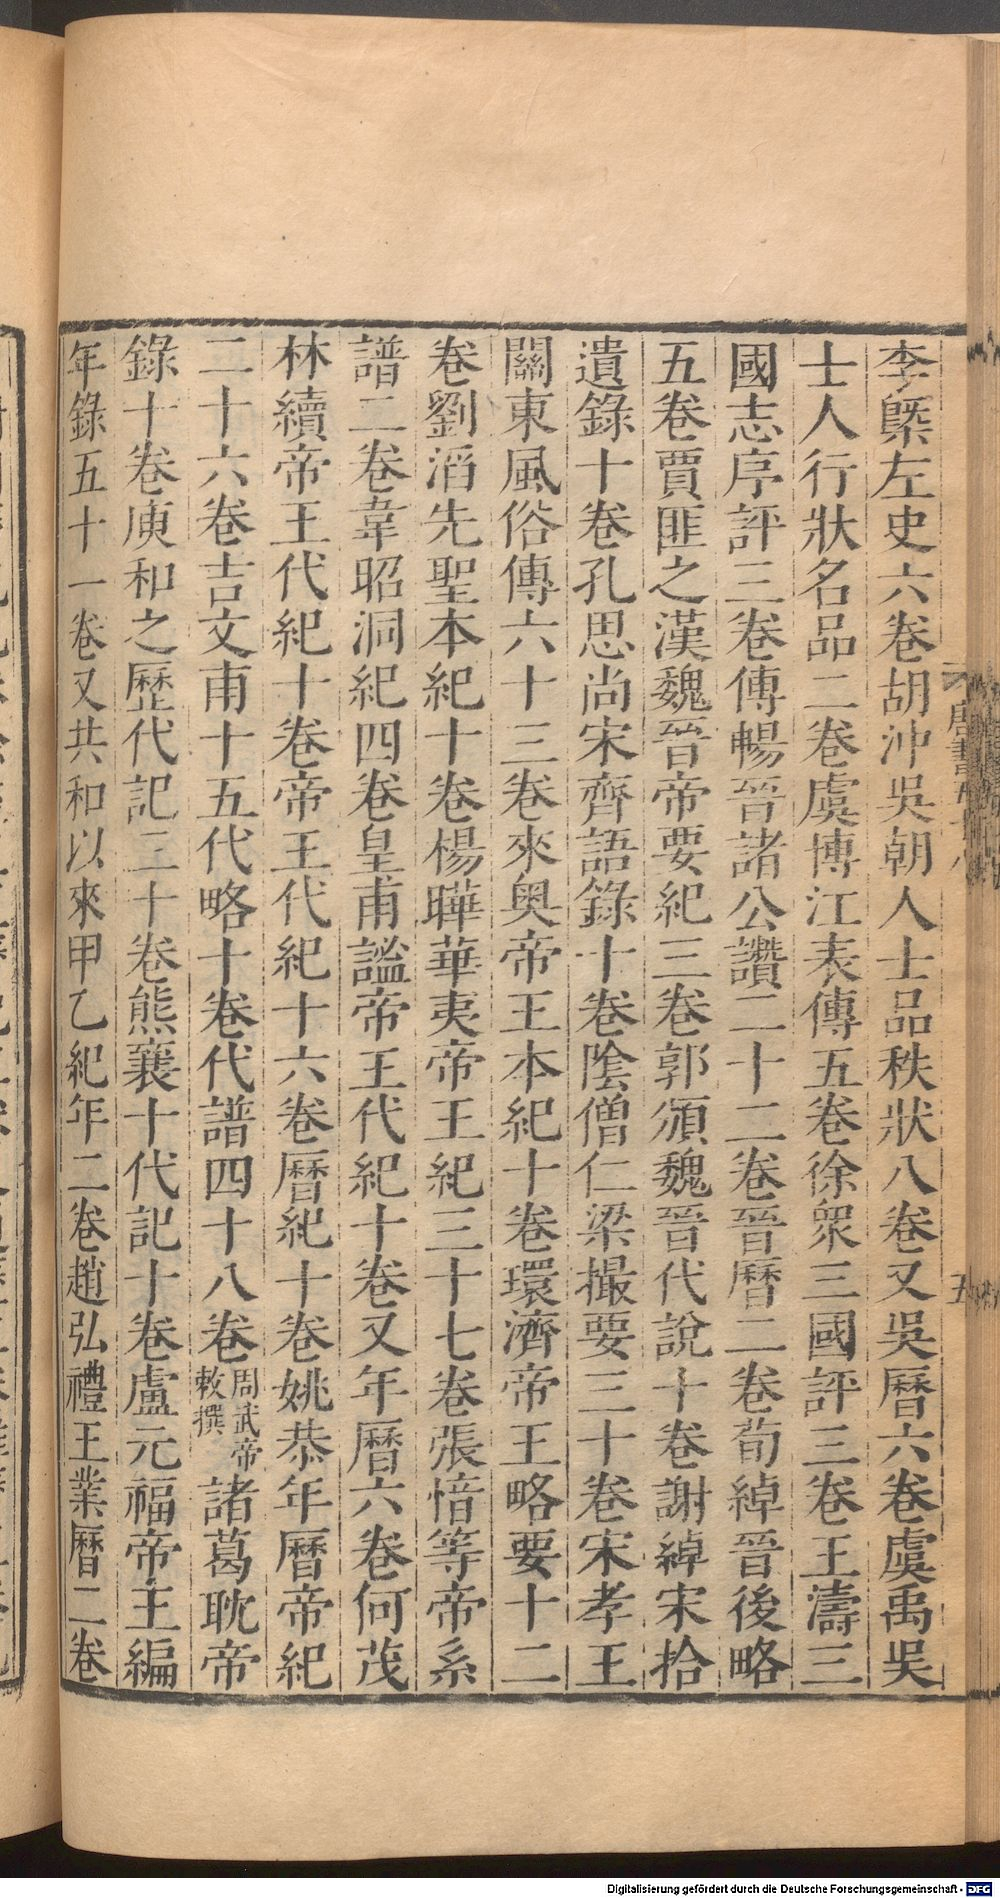 李槩左史六卷胡沖吳朝人士品秩狀八卷又吳曆六卷虞禹吳
士人行狀名品二卷虞博江表傳五卷徐眾三國評三卷王濤三
國志序評三卷傳暢晉諸公讚二十二卷晉曆二卷荀綽晉後略
五卷賈匪之漢魏晉帝要紀三卷郭頒魏晉代說十卷謝綽宋拾
遺錄十卷孔思尚宋齊語錄十卷陰僧仁梁撮要三十卷宋孝王
關東風俗傳六十三卷來奧帝王本紀十卷環濟帝王略要十二
卷劉滔先聖本紀十卷楊曄華夷帝王紀三十七卷張愔等帝系
譜二卷韋昭洞紀四卷皇甫謐帝王代紀十卷又年曆六卷何茂
林續帝王代紀十卷帝王代紀十六卷曆紀十卷姚恭年曆帝紀
二十六卷吉文甫十五代略十卷代譜四十八卷周武帝敕撰諸葛耽帝
錄十卷庾和之歷代記三十卷熊襄十代記十卷盧元福帝王編
年錄五十一卷又共和以來甲乙紀年二卷趙弘禮王業曆二卷
五
Digitalisierung gefördert durch die Deutsche Forschungsgemeinschaft - DFG